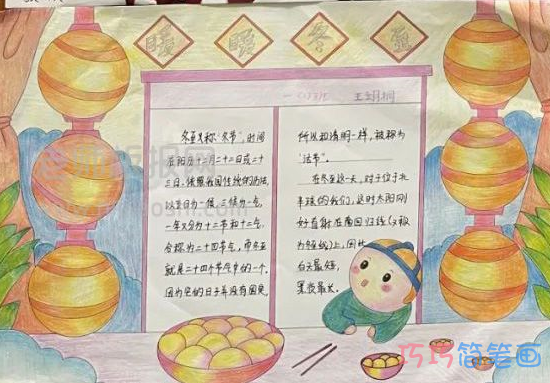 暖暖冬至
一(3)班 王
冬至又称"冬节",时间
在阳历十二月二十二日或二十
三日。依照我国传统的历法,
以五日为一候,三候为一气,
一年又分为十二节和十二气,
合称为二十四节气,而冬至
就是二十四个节气中的一个。
因为它的日子并没有固定,
所以和清明一样,被称为
"活节"。
在冬至这一天,对于位于北
半球的我们,这时太阳刚
好直射在南回归线(又称
为冬至线)上,因此
白天最短,
黑夜最长。
巧巧简笔画